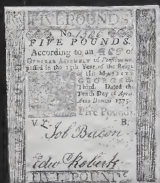 FIVE POUNDS
No.
FIVE POUNDS.
According to an ACT of
GENERAL ASSEMBLY of Pennsylvania
passed in the 15th Year of the Reign
of his MAJESTY
GEORGE
Third. Dated the
Tenth Day of April
Anno Domini 1775.
Five Pounds
V £. B.
Job Bacon
Edw Roberts
FIVE POUNDS